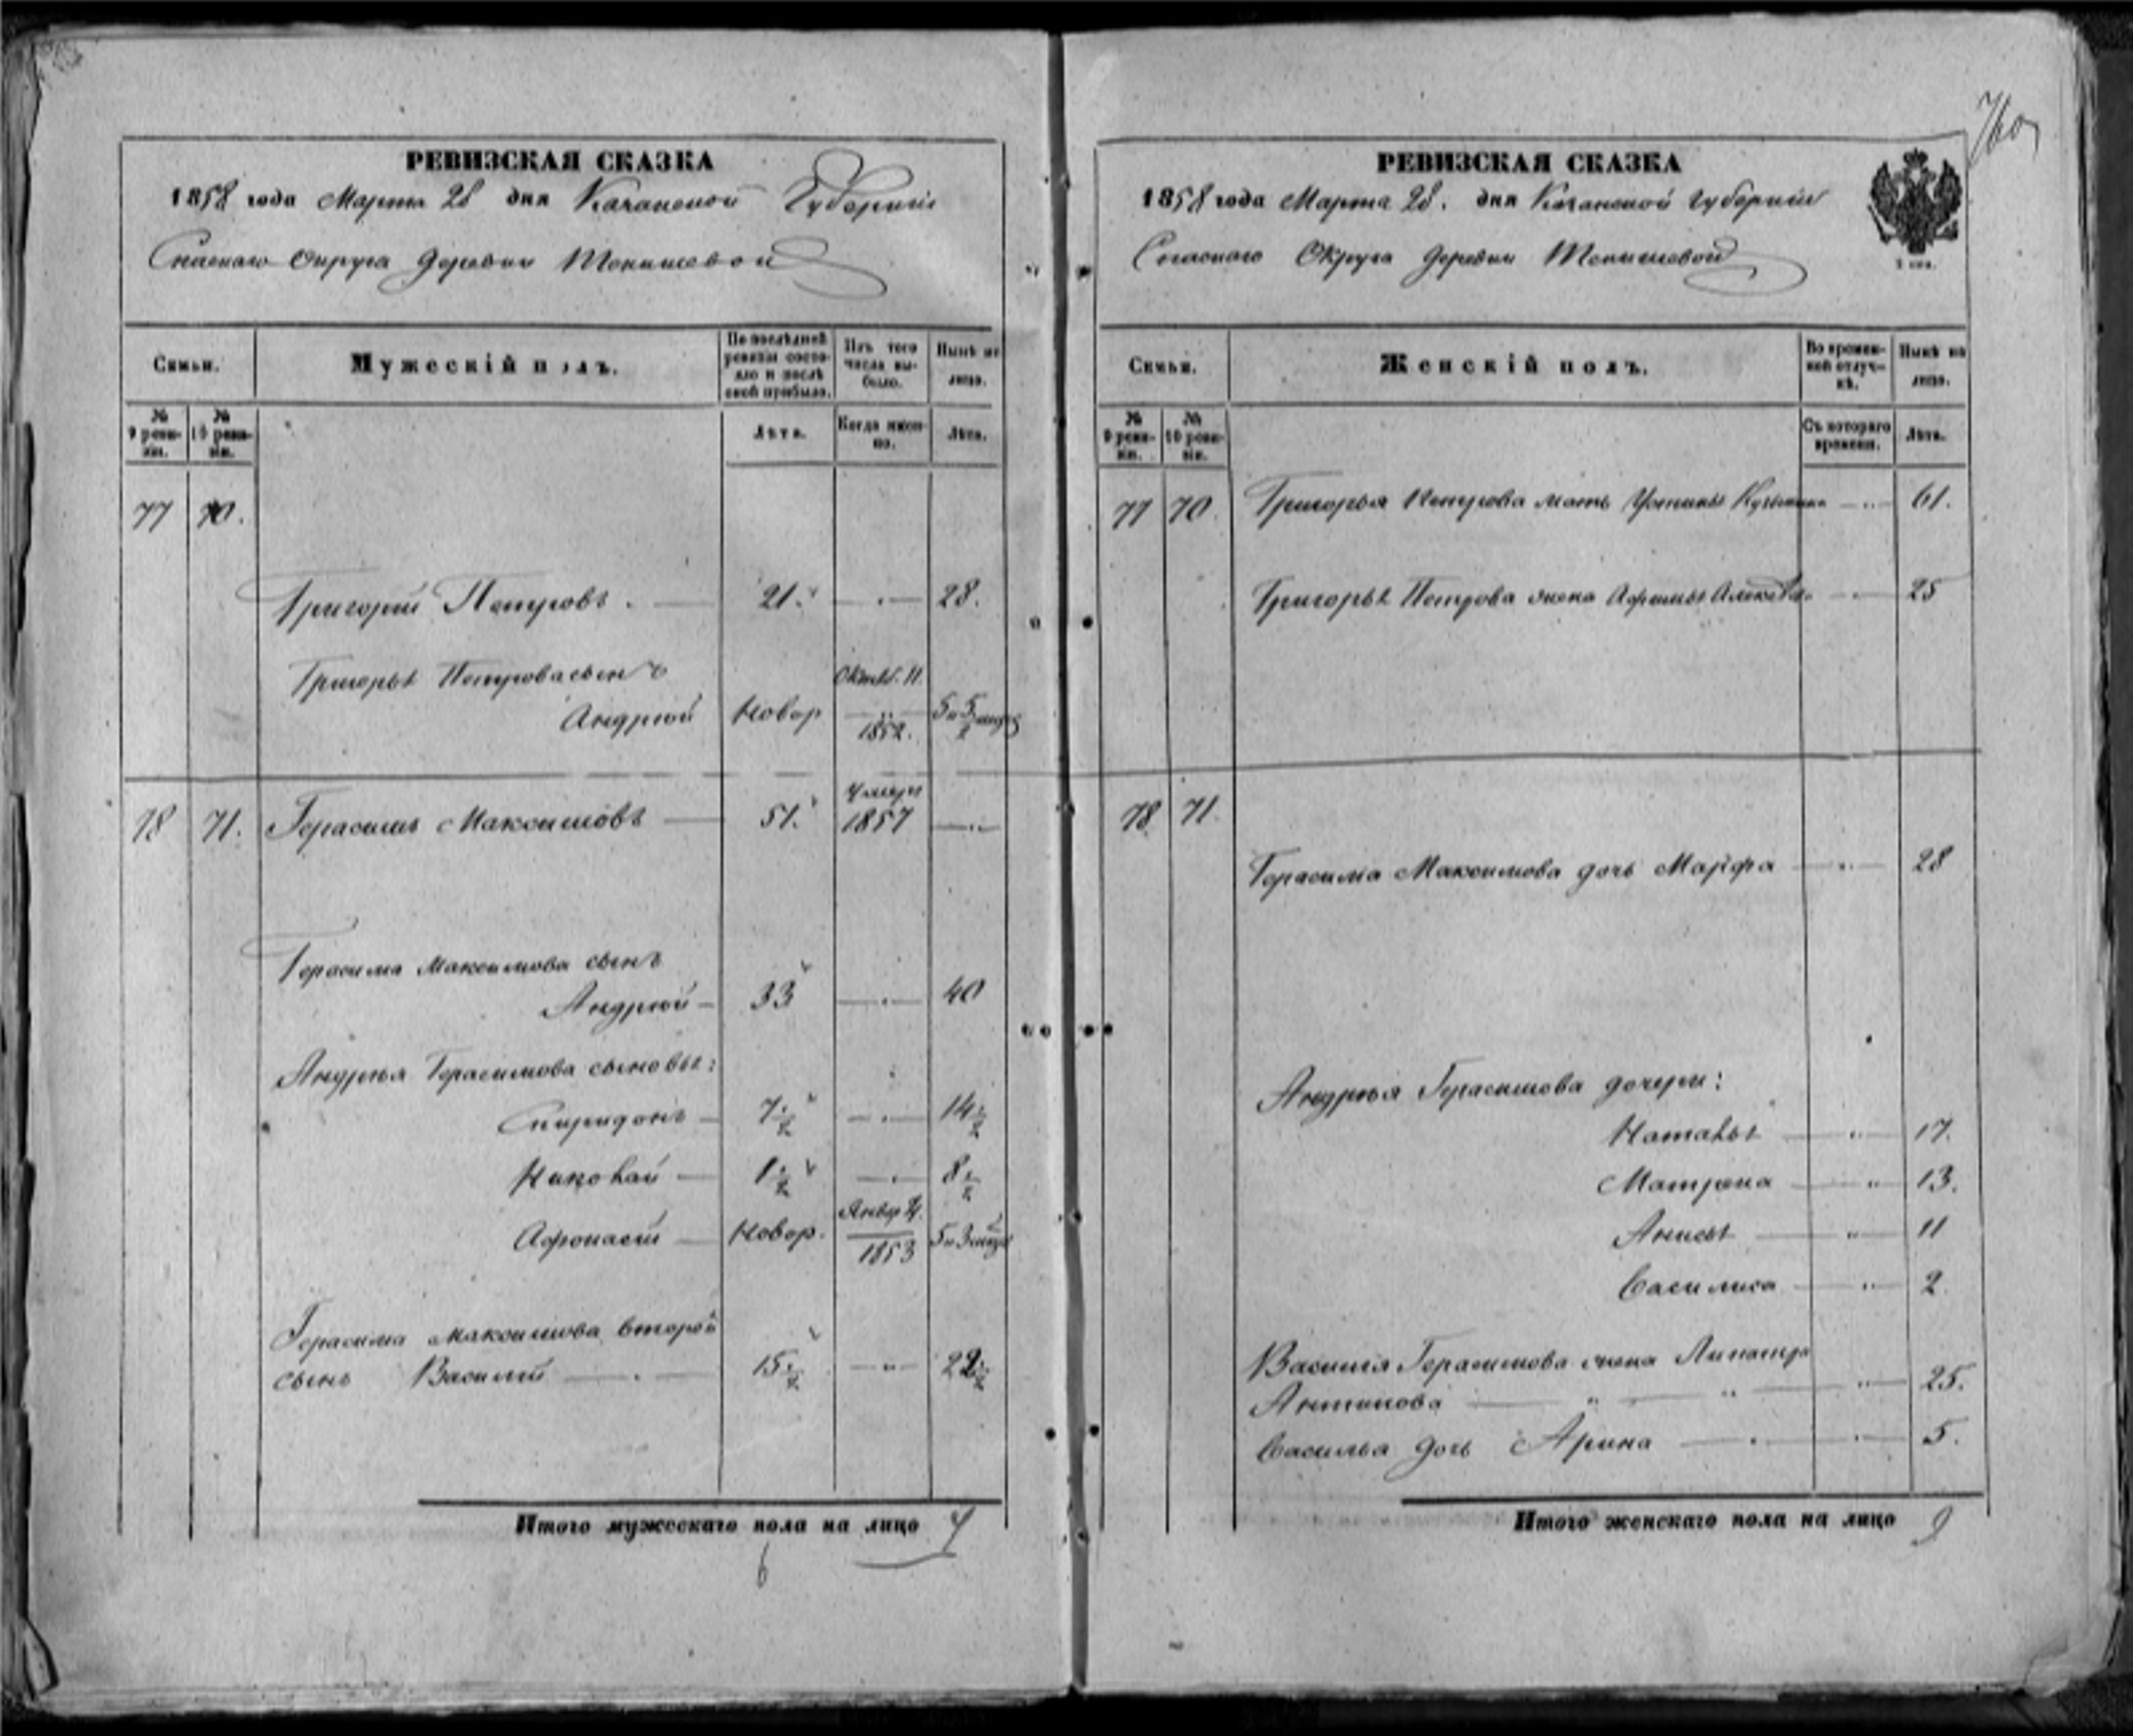 РЕВИЗСКАЯ СКАЗКА
1858 года Марта 28 дня Казанской Губерніи
Спаскаго Округа Деревни
Семьи.
Мужескій полъ.
По послѣдней ревизіи состояло и послѣ оной прибыло.
Изъ того числа выбыло.
Нынѣ на лицо.
№ 9 ревизіи.
№ 10 ревизіи.
Лѣта.
Когда именно.
Лѣта.
77 70.
Григорій Петровъ. 21. 28.
Григорья Петрова сынъ
Андрей Новор 1852. 5 и 5
78 71. Герасимъ Максимовъ 51. умеръ 1857
Герасима Максимова сынъ
Андрей 33 40
Андрея Герасимова сыновья:
Спиридонъ 7 1/2 14 1/2
Николай 1 1/2 8 1/2
Афонасій Новор. Янвор 1853 5 и 3
Герасима Максимова второй
сынъ Василій 15 1/2 22 1/2
Итого мужескаго пола на лицо 7
6
760
РЕВИЗСКАЯ СКАЗКА
1858 года Марта 28. дня Казанской Губерніи
Спаскаго Округа Деревни
Семьи.
Женскій полъ.
Во временной отлучкѣ.
Нынѣ на лицо.
№ 9 ревизіи.
№ 10 ревизіи.
Съ котораго времени.
Лѣта.
77 70 Григорья Петрова мать Устинья 61.
Григорья Петрова жена Афимья 25
78 71.
Герасима Максимова дочь Марфа 28
Андрея Герасимова дочери:
Наталья 17.
Матрена 13.
Анисья 11
Василиса 2.
Василья Герасимова жена
Антипова 25.
Василья дочь Арина 5.
Итого женскаго пола на лицо 9